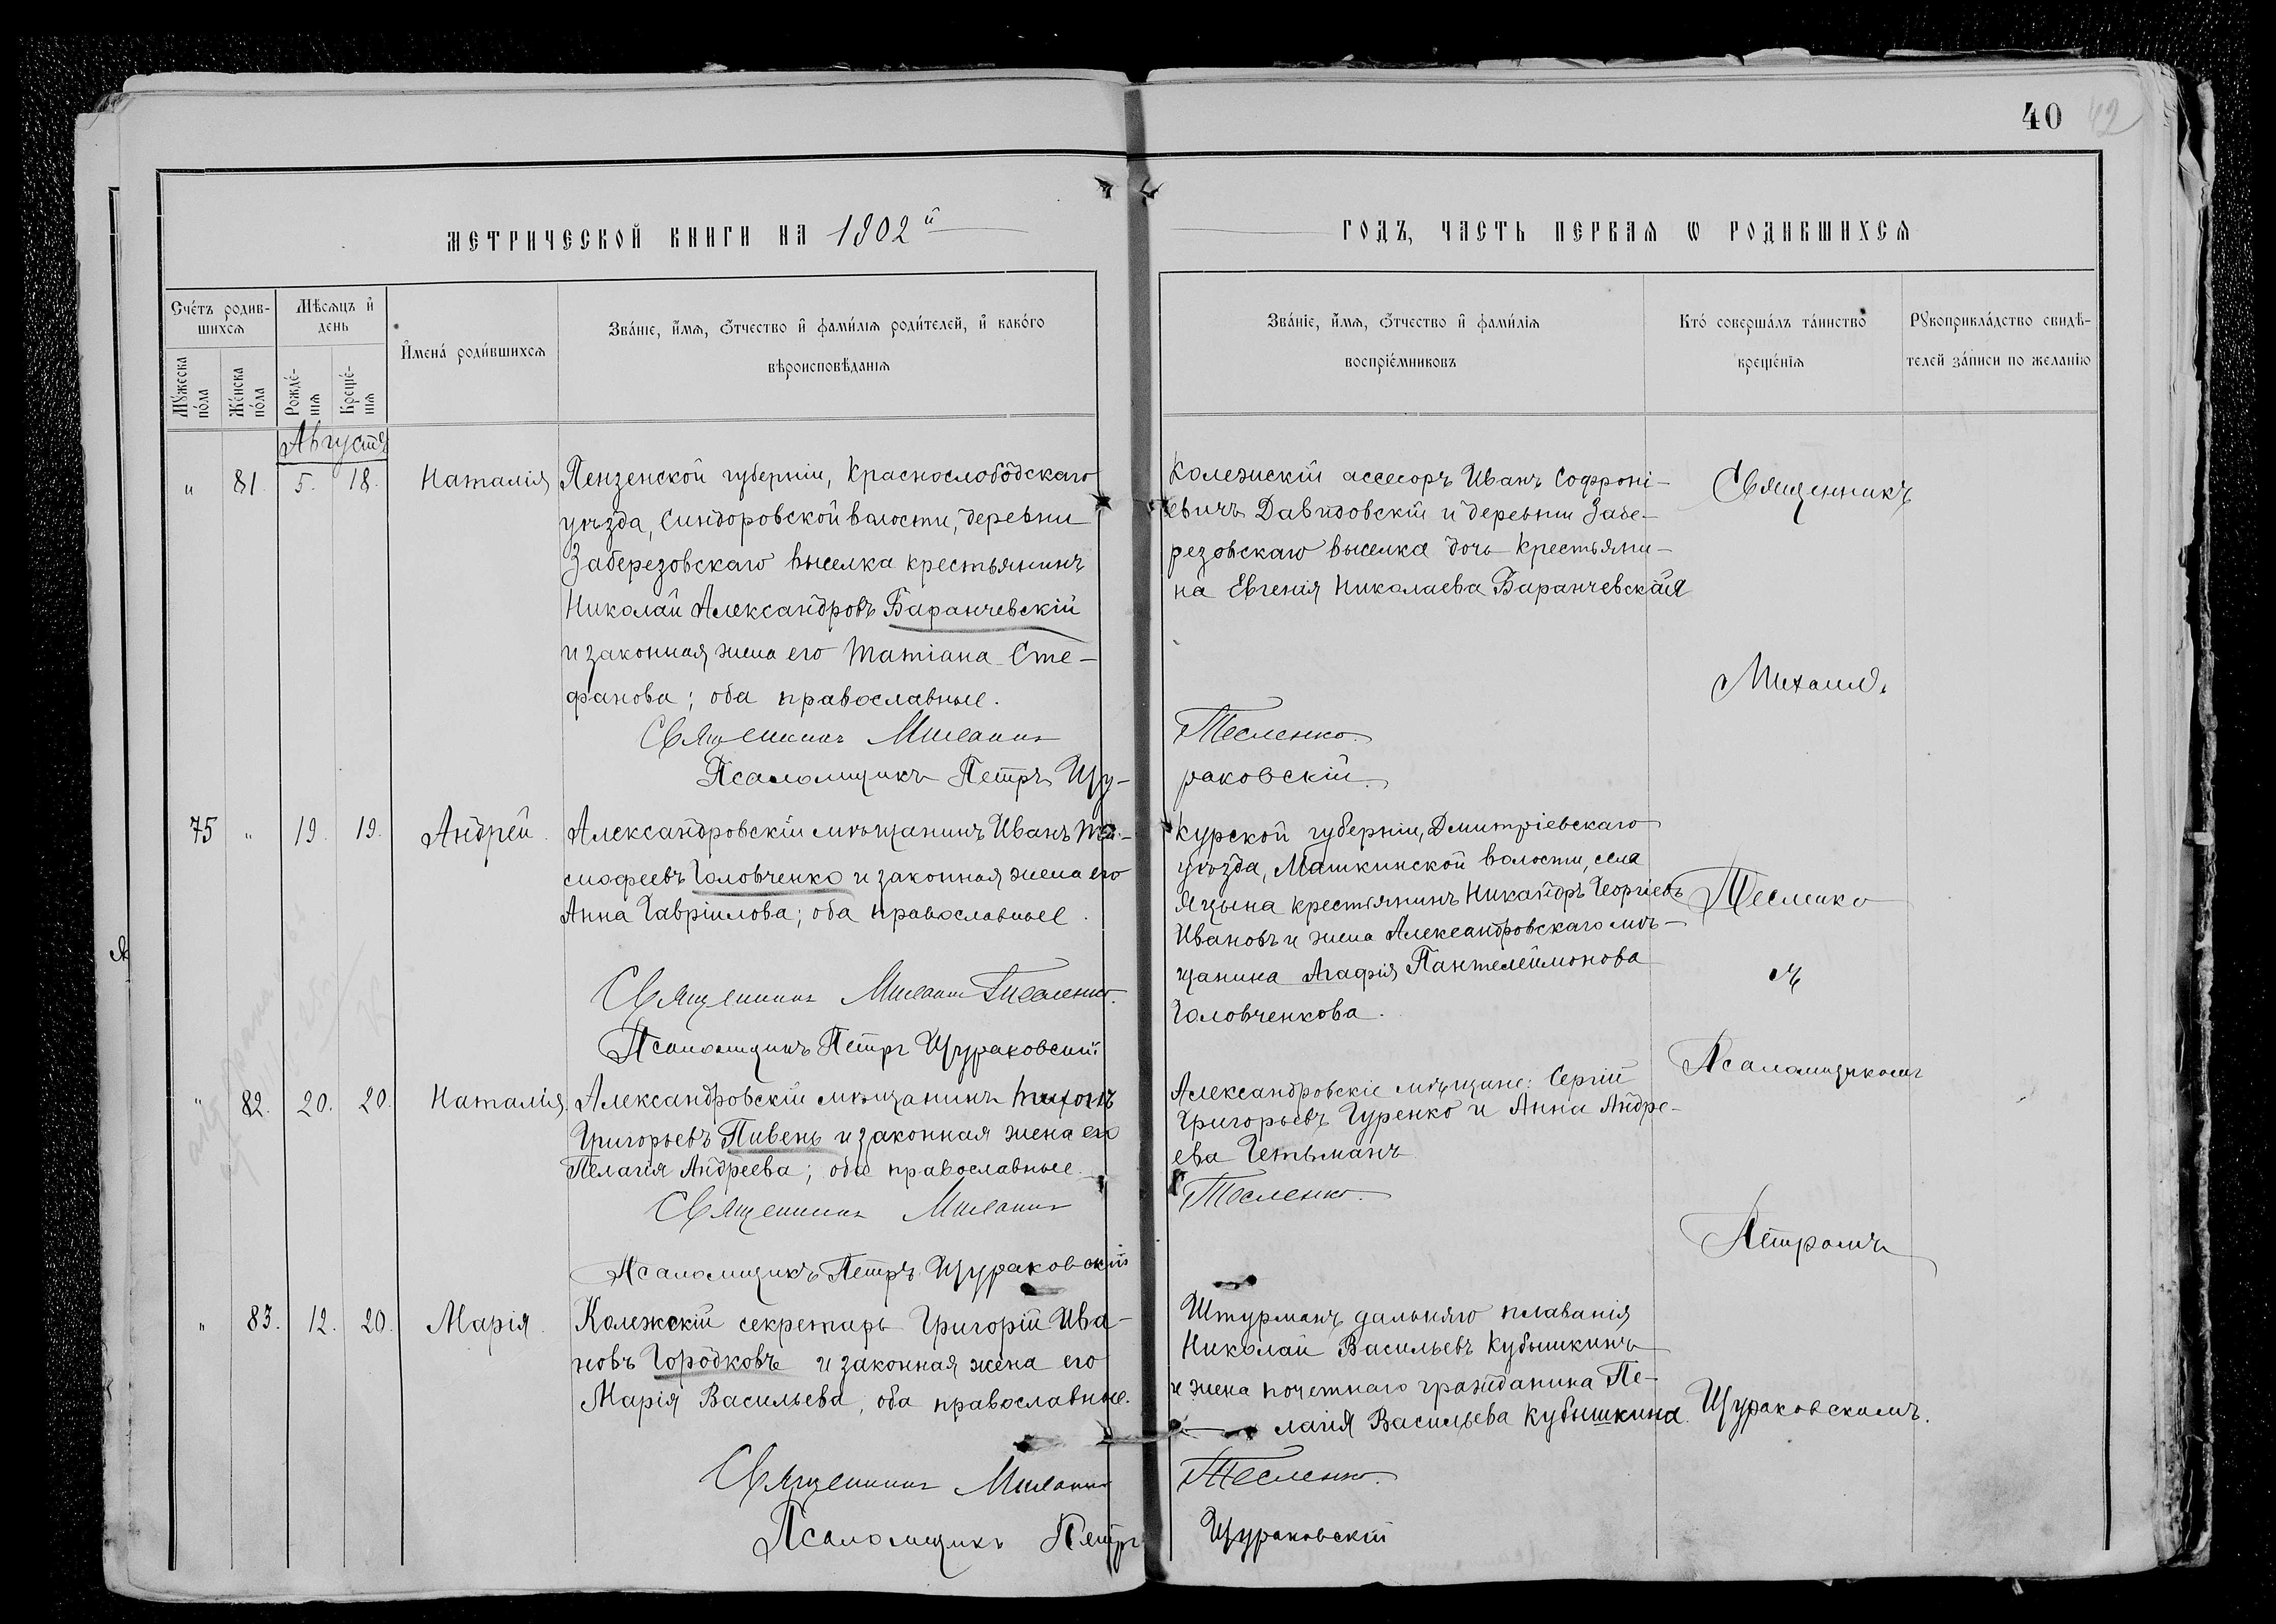 40 42
МЕТРИЧЕСКОЙ КНИГИ НА 1902й
ГОДЪ, ЧАСТЬ ПЕРВАЯ Ѡ РОДИВШИХСЯ
Счетъ родив-
шихся
Мѣсяцъ и
день
Мꙋжеска
пола
Женска
пола
Рожде-
нія
Креще-
нія
Имена родившихся
Званіе, имя, ѿчество и фамилія родителей, и какого
вѣроисповѣданія
Званіе, имя, ѿчество и фамилія
воспріемниковъ
Кто совершалъ таинство
крещенія
Рꙋкоприкладство свидѣ-
телей записи по желанію
Августа
" 81. 5. 18. Наталія
Пензенской губерніи, Краснослободскаго
уѣзда, Синдоровской волости, деревни
Заберезовскаго выселка крестьянинъ
Николай Александровъ Баранчевскій
и законная жена его Татіана Сте-
фанова; оба православные.
Священникъ Михаилъ
Псаломщикъ Петръ Щу-
Колежскій ассесоръ Иванъ Софроні-
евичъ Давидовскій и деревни Забе-
резовскаго выселка дочь крестьяни-
на Евгенія Николаева Баранчевская
Тесленко.
раковскій.
Священникъ
Михаилъ
Тесленко
съ
Псаломщикомъ
Петромъ
Щураковскимъ.
75 " 19. 19. Андрей.
Александровскій мѣщанинъ Иванъ Ти-
моѳеевъ Головченко и законная жена его
Анна Гавріилова; оба православные.
Священникъ Михаилъ Тесленко.
Псаломщикъ Петръ Щураковскій
Курской губерніи, Дмитріевскаго
уѣзда, Машкинской волости, села
Яцына крестьянинъ Никандръ Георгіевъ
Ивановъ и жена Александровскаго мѣ-
щанина Агафія Пантелеймонова
Головченкова.
" 82. 20. 20. Наталія.
Александровскій мѣщанинъ Тихонъ
Григорьевъ Пивень и законная жена его
Пелагія Андреева; оба православные.
Священникъ Михаилъ
Псаломщикъ Петръ Щураковскій
Александровскіе мѣщане: Сергій
Григорьевъ Гуренко и Анна Андре-
ева Гетьманъ
Тесленко.
" 83. 12. 20. Марія.
Колежскій секретарь Григорій Ива-
новъ Городковъ и законная жена его
Марія Васильева, оба православные.
Священникъ Михаилъ
Псаломщикъ Петръ
Штурманъ дальняго плаванія
Николай Васильевъ Кубышкинъ
и жена почетнаго гражданина Пе-
лагія Васильева Кубышкина.
Тесленко.
Щураковскій